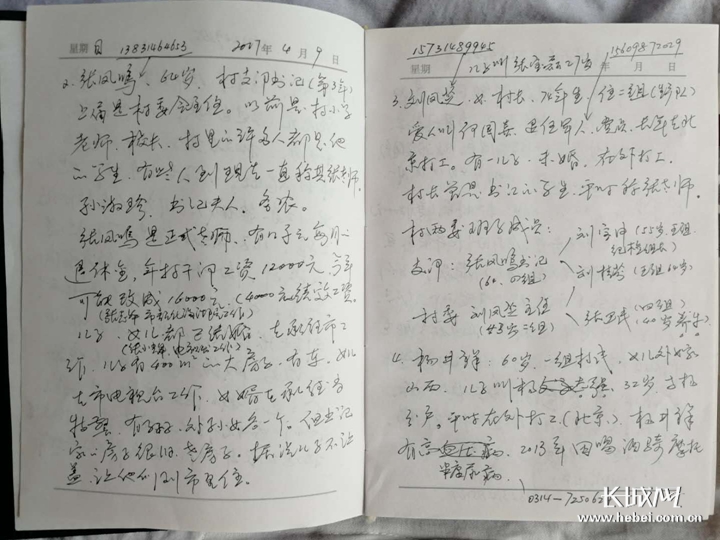 星期日 13831464653 2017年4月9日
2. 张凤鸣、64岁、村支部书记(第3年)
上届是村委会主任。以前是村小学
老师、校长、村里的许多人都是他
的学生、有些人到现在一直称其张老师。
书记夫人、务农。
张凤鸣是正式老师、有4千元每月的
退休金,年村干部工资12000元 今年
可能改成16000元(4000元绩效工资。
儿子、女儿都已结婚、在承德市工
作、儿子有400㎡的大房子、有车、女儿
在市电视台工作、女婿在承德
有孙子、外孙女各一个。但书记
家的房子很旧、老房子。据说儿子不让
盖、让他们到市里住。
15731489945 15609872029
星期 年 月 日
儿子叫张 27岁
3. 刘凤芝、女、村长、76年生、住二组(生产队)
爱人叫何国 是 去年在北
京打工。有一儿子、未婚、在外打工。
村长曾是书记的学生、平时称张老师。
村两委班子成员:
支部:张凤鸣书记
(60. 四组)
刘 (55岁 五组
纪检组长)
刘桂 (五组 60岁)
村委 刘凤芝主任
(43岁二组)
张卫民 (四组)
(40岁养牛)
4. 杨井祥:60岁、一组村民、女儿外嫁
山西、儿子叫杨 32岁、
平时在外打工(北京)、杨井祥
有高血压病、2013年因喝酒骑摩托
糖尿病
0314-725062
长城网
www.hebei.com.cn